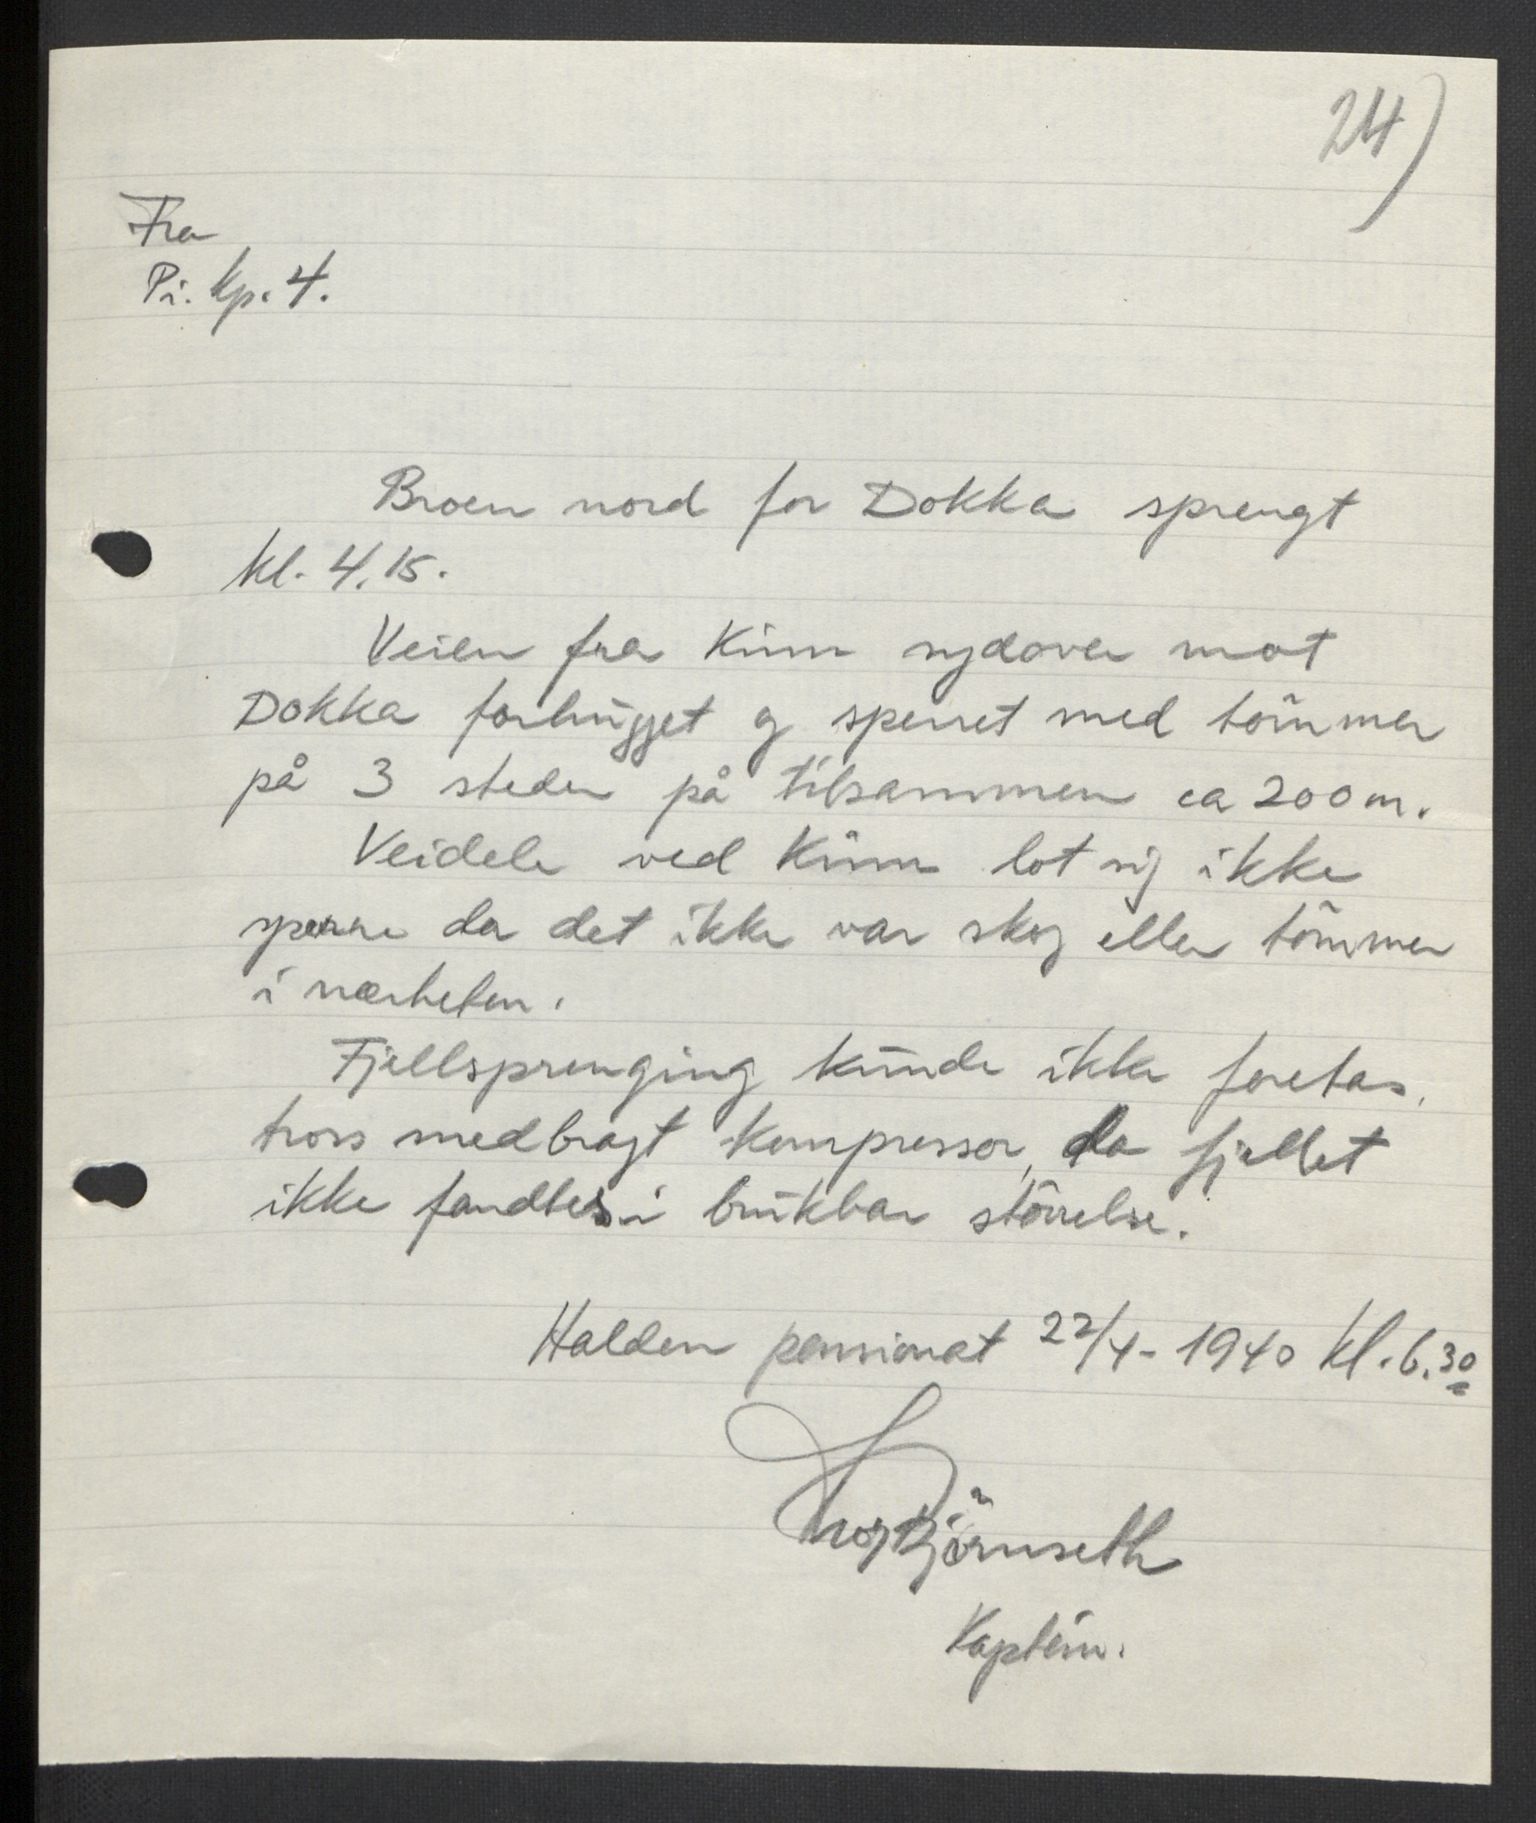 24)
Fra
Pi. kp. 4.
Broen nord for Dokka sprengt
kl. 4.15.
Veien fra Kinn sydover mot
Dokka forhugget og sperret med tömmer
på 3 steder på tilsammen ca 200 m.
Veidele ved Kinn lot sig ikke
sperre da det ikke var skog eller tömmer
i nærheten.
Fjellsprenging kunde ikke foretas,
tross medbragt kompressor, da fjellet
ikke fandtes i brukbar störrelse.
Halden pensionat 22/4-1940 kl. 6.30
Björnseth
Kaptein.